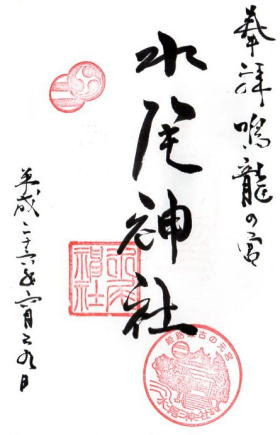 奉拝 鳴龍の宮
水尾神社
平成二十六年六月二九日
水尾神社
古の元宮
水尾神社